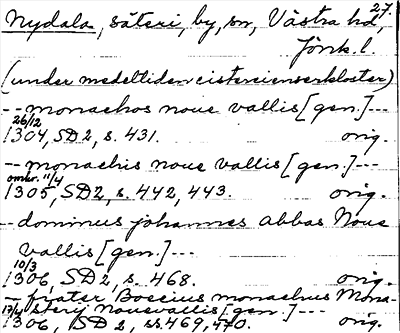 Nydala, säteri, by, sn, Västra hd, 27.
Jönk. l.
(under medeltiden cistercienserkloster)
-- monachos noue vallis [gen.] ---
26/12
1304, SD 2, s. 431. orig.
-- monachis noue vallis [gen.] ---
omkr. 11/4
1305, SD 2, s. 442, 443. orig.
-- dominus johannes abbas Noue
vallis [gen.] ---
10/3
1306, SD 2, s. 468. orig.
-- frater Boecius monachus Mona-
sterij Nouevallis [gen.] ---
17/4
1306, SD 2, ss. 469, 470. orig.